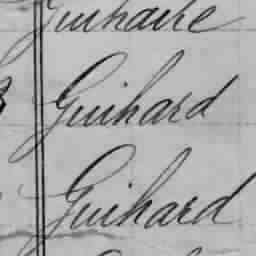 Guihaire
Guihard
Guihard